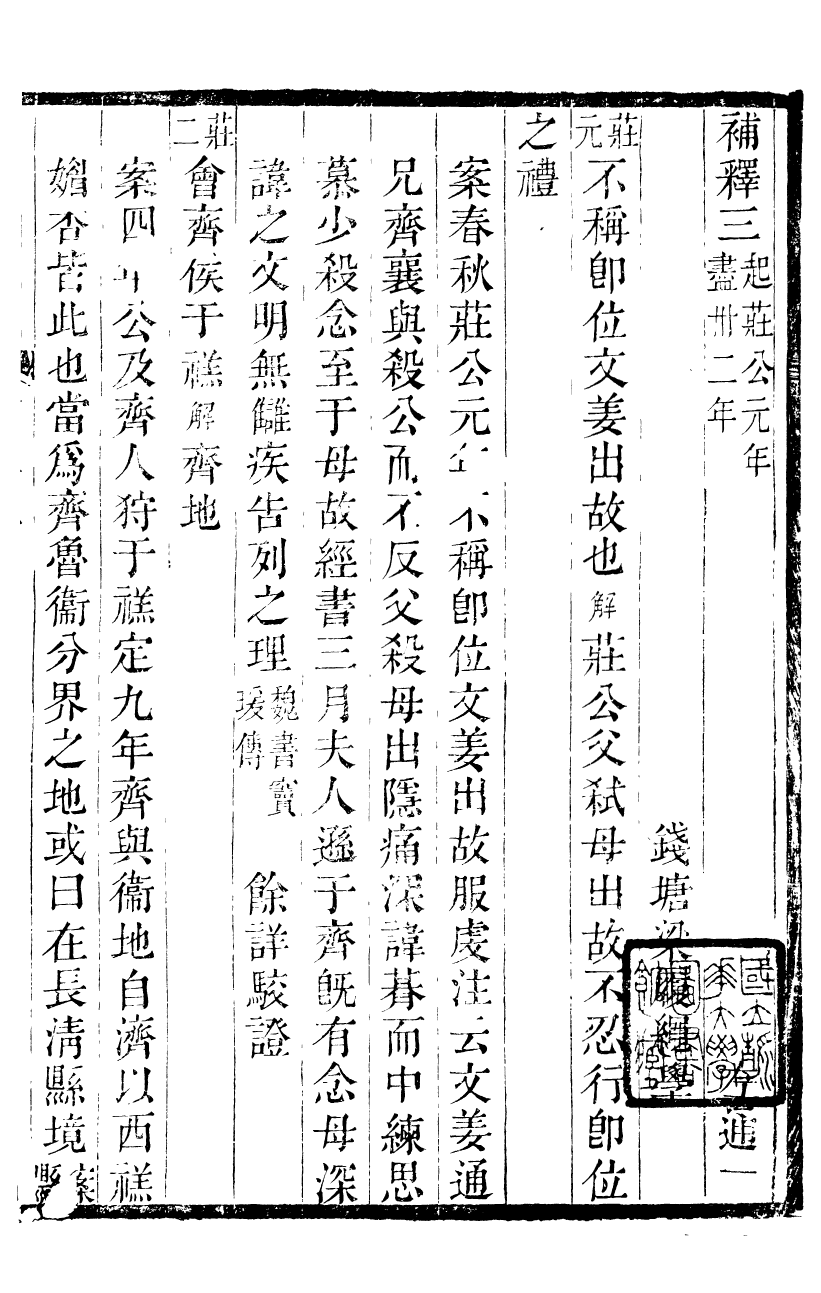 補釋三 起莊公元年 盡卅二年 通一
錢塘梁履繩學
莊元 不稱卽位文姜出故也 解 莊公父弒母出故不忍行卽位
之禮
案春秋莊公元年不稱卽位文姜出故服虔注云文姜通
兄齊襄與殺公而不反父殺母出隱痛深諱朞而中練思
慕少殺念至于母故經書三月夫人遜于齊旣有念母深
諱之文明無讎疾告列之理 魏書竇瑗傳 餘詳駮證
莊二 會齊侯于禚 解 齊地
案四年公及齊人狩于禚定九年齊與衞地自濟以西禚
媚杏皆此也當爲齊魯衞分界之地或曰在長淸縣境 案縣